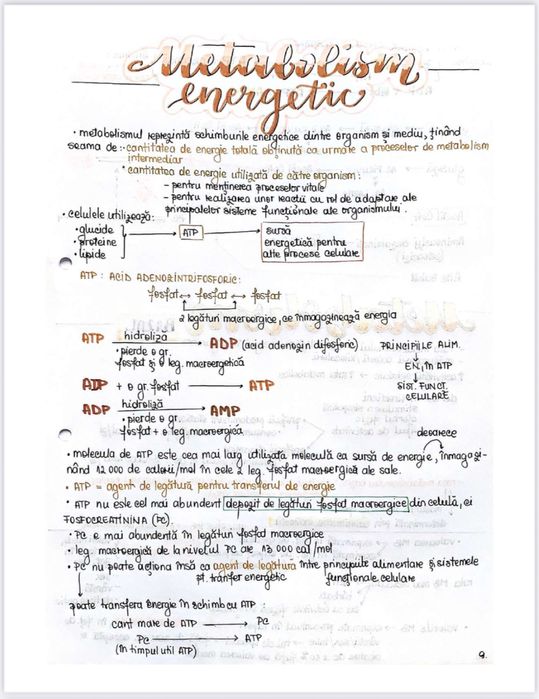 Metabolism
energetic
• metabolismul reprezintă schimburile energetice dintre organism și mediu, ținând
seama de: • cantitatea de energie totală obținută ca urmare a proceselor de metabolism
intermediar
• cantitatea de energie utilizată de către organism:
- pentru menținerea proceselor vitale
- pentru realizarea unor reacții cu rol de adaptare ale
principalelor sisteme funcționale ale organismului.
• celulele utilizează:
• glucide
• proteine
• lipide
ATP
sursă
energetică pentru
alte procese celulare
ATP: ACID ADENOZINTRIFOSFORIC:
fosfat ↔ fosfat ↔ fosfat
2 legături macroergice, ce înmagazinează energia
ATP hidroliză → ADP (acid adenozin difosforic)
• pierde o gr.
fosfat și o leg. macroergetică
PRINCIPIILE ALIM.
↓
EN, în ATP
↓
SIST. FUNCT.
CELULARE
ADP + o gr. fosfat → ATP
ADP hidroliză → AMP
• pierde o gr.
fosfat + o leg. macroergică
deoarece
• molecula de ATP este cea mai larg utilizată moleculă ca sursă de energie, înmagazi-
nând 12 000 de calorii/mol în cele 2 leg. fosfat macroergică ale sale.
• ATP = agent de legătură pentru transferul de energie
• ATP nu este cel mai abundent depozit de legături fosfat macroergice din celulă, ci
FOSFOCREATININA (PC)
• PC e mai abundentă în legături fosfat macroergice
• leg. macroergică de la nivelul PC are 13 000 cal/mol
• PC nu poate acționa însă ca agent de legătura între principiile alimentare și sistemele
pt. tranfer energetic funcționale celulare
↓
poate transfera energie în schimb cu ATP
cant mare de ATP → PC
PC → ATP
(în timpul util ATP)
9.